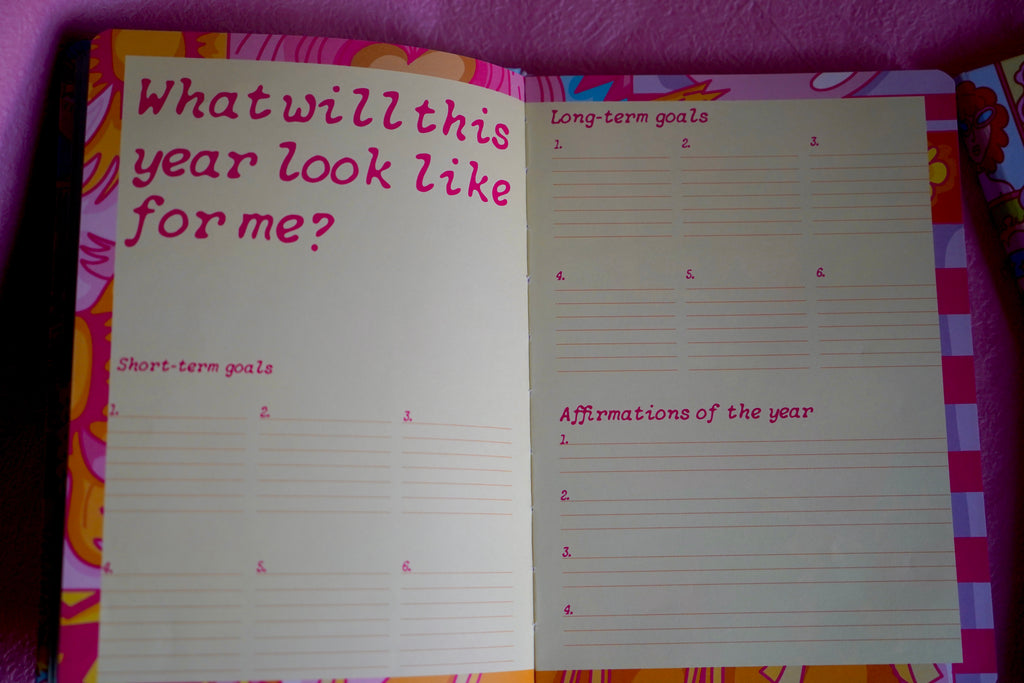 What will this
year look like
for me?
Short-term goals
1. 2. 3.
4. 5. 6.
Long-term goals
1. 2. 3.
4. 5. 6.
Affirmations of the year
1.
2.
3.
4.